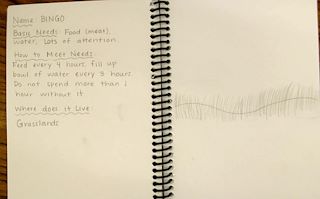 Name: BINGO
Basic Needs: Food (meat),
water, Lots of attention
How to Meet Needs:
Feed every 4 hours, fill up
bowl of water every 3 hours.
Do not spend more than 1
hour without it.
Where does it Live:
Grasslands